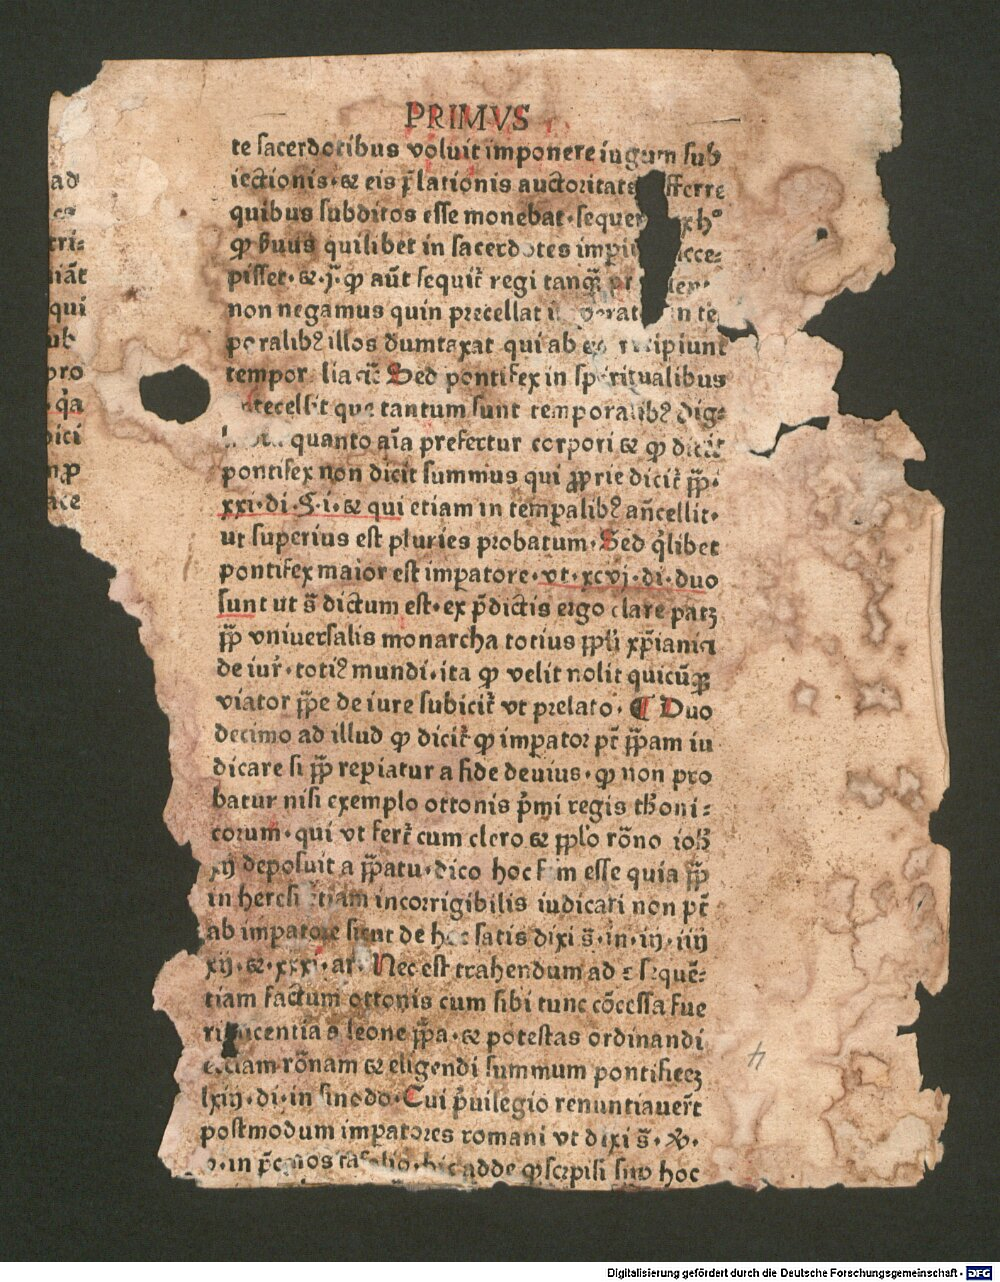 PRIMVS
te sacerdotibus voluit imponere iugum sub
iectionis·⁊ eis p̄lationis auctoritatē fferre
quibus subditos esse monebat·sequer xh°
ꝙ buus quilibet in sacerdotes impiu acce⸗
pisset·⁊·j·ꝙ aūt sequit̄ regi tanq̄
non negamus quin precellat in te
poralibꝰ illos dumtaxat qui ab eo recipiunt
temporalia Sed pontifex in spiritualibus
tantum sunt temporalibꝰ dig⸗
quanto aīa prefertur corpori ⁊ ꝙ dicit̄
pontifex non dicit summus qui ꝓprie dicit̄ p̄p·
xxi·di·§·i·⁊ qui etiam in temꝑalibꝰ añcellit·
ut superius est pluries probatum·Sed q̄libet
pontifex maior est imꝑatore·vt·xcvj·di·duo
sunt ut s̄ dictum est·ex p̄dictis ergo clare patꝫ
p̄p vniuersalis monarcha totius ppl̄i xp̄iani
de iur̄·totiꝰ mundi·ita ꝙ velit nolit quicūqꝫ
viator p̄pe de iure subicit̄ vt prelato· ¶ Duo
decimo ad illud ꝙ dicit̄ ꝙ imꝑator pt̄ p̄pam iu
dicare si p̄p reꝑiatur a fide deuius·ꝙ non pro
batur nisi exemplo ottonis p̄mi regis thoni⸗
corum·qui vt fert̄ cum clero ⁊ pplo rōno ioh̄
xij deposuit a p̄patu·dico hoc esse quia p̄p
in heresi etiam incorrigibilis iudicari non pt̄
ab imꝑatore sicut de hoc satis dixi s̄·in·iij·iiij
xij·⁊·xxxi·ar·Nec est trahendum ad sequē⸗
tiam factum ottonis cum sibi tunc cōcessa fue
rit licentia a leone p̄pa·⁊ potestas ordinandi
ecclam rōnam ⁊ eligendi summum pontificeꝫ
lxiij·di·in sinodo·Cui p̄uilegio renuntiauer̄t
postmodum imꝑatores romani vt dixi s̄·
hic adde ꝙ scripsi hoc
ad
cri⸗
iāt
qui
ub
pro
q̄a
ici
4
Digitalisierung gefördert durch die Deutsche Forschungsgemeinschaft - DFG